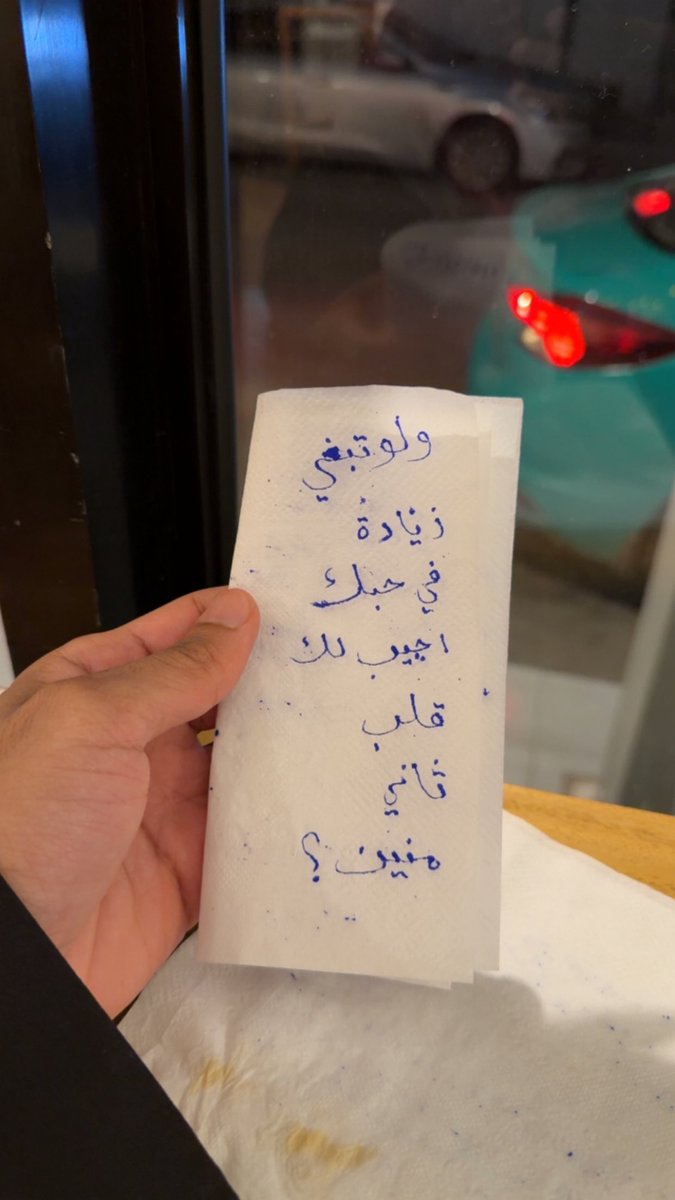 ولو تبغي
زيادة
في حبك
اجيب لك
قلب
ثاني
منين ؟